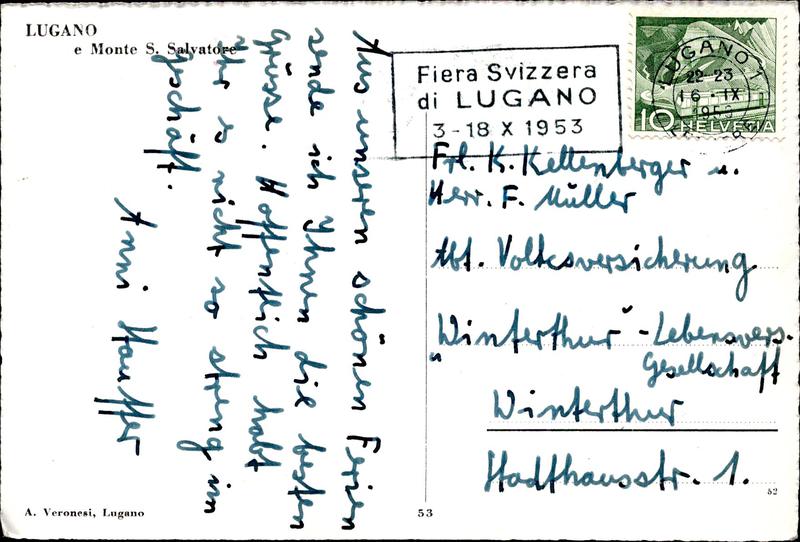 LUGANO
e Monte S. Salvatore
Aus unseren schönen Ferien
sende ich Ihnen die besten
Grüsse. Hoffentlich habt
Ihr s nicht so streng im
Geschäft.
Anni Hauffer
A. Veronesi, Lugano
53
Fiera Svizzera
di LUGANO
3-18 X 1953
LUGANO 1
22-23
16·IX
1953
10 HELVETIA
Frl. K. Kellenberger u.
Herr. F. Müller
Abt. Volksversicherung
"Winterthur"-Lebensvers.
Gesellschaft
Winterthur
Stadthausstr. 1.
52